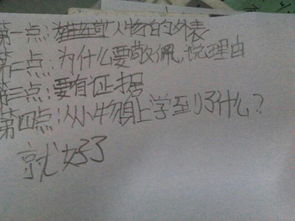 第一点:人物的外表
第二点:为什么要敬佩,说理由
第三点:要有证据
第四点:从人物身上学到了什么?
就好了